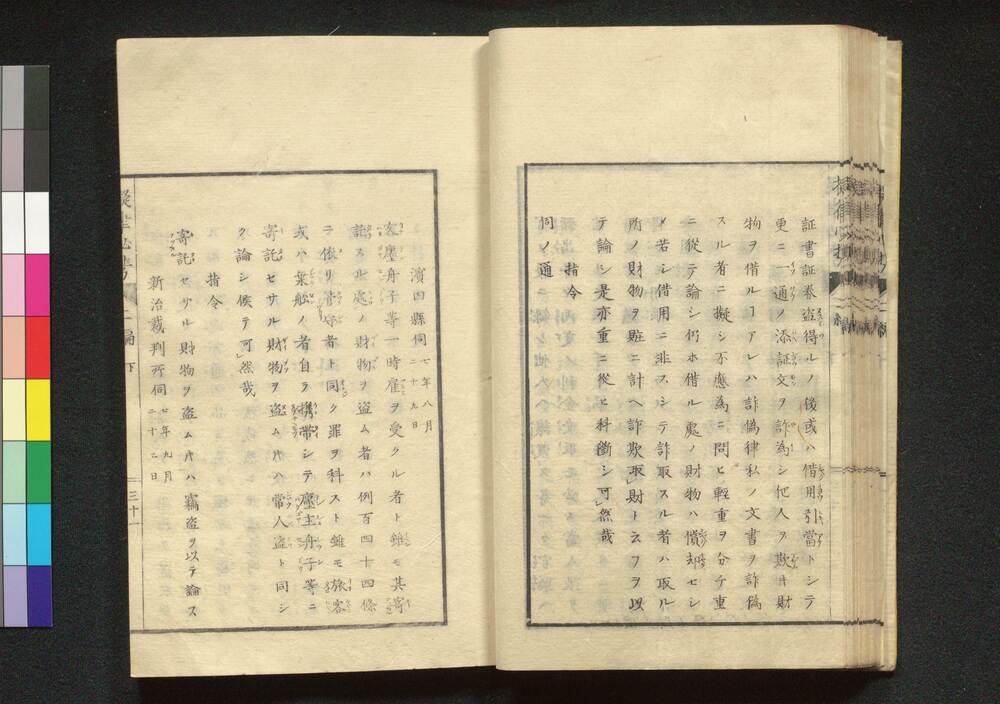 証書証券盗得ルノ後或ハ借用引當トシテ
更ニ一通ノ添証文ヲ詐為シ他人ヲ欺キ財
物ヲ借ルヿアレハ詐偽律私ノ文書ヲ詐偽
スル者ニ擬シ不應為ニ問ヒ軽重ヲ分チ重
ニ従テ論シ仍ホ借ル処ノ財物ハ償却セシ
メ若シ借用ニ非スシテ詐取スル者ハ取ル
所ノ財物ヲ贓ニ計ヘ詐欺取財ト云フヲ以
テ論シ是亦重ニ従ヒ科断シ可然哉
指令
伺ノ通
濱田縣伺 七年八月二十九日
車塵舟子等一時雇ヲ受クル者ト雖モ其寄
託スル処ノ財物ヲ盗ム者ハ例百四十四條
ニ依リ管守者ト同ク罪ヲ科スト雖モ旅客
或ハ乗船ノ者自ラ携帯シテ塵主舟子等ニ
寄託セサル財物ヲ盗ムハ常人盗ト同シ
ク論シ候テ可然哉
指令
寄託セサル財物ヲ盗ムハ竊盗ヲ以テ論ス
新治裁判所伺 七年九月二十二日
二編 下
三十一